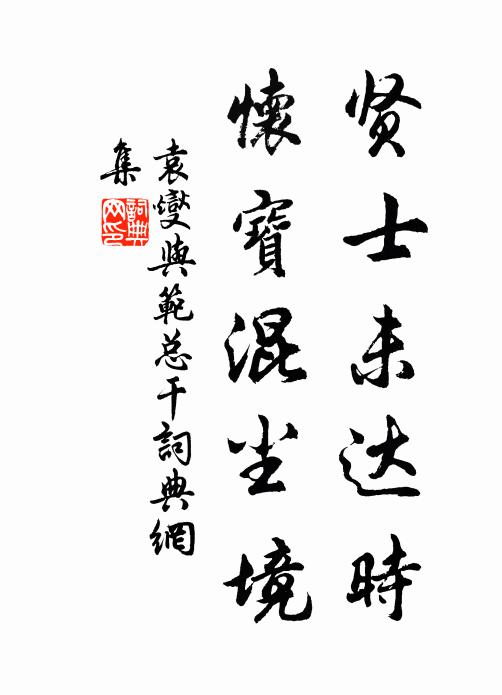 贤士未达時
懷寶混尘境
袁燮與範总干詞典網
集
詞典
网印